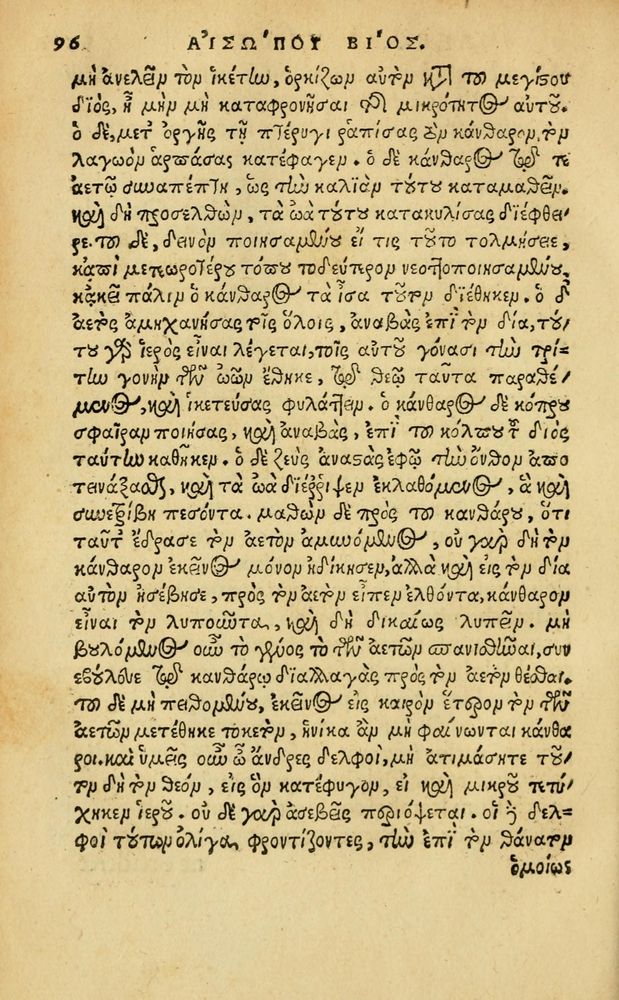 96 ΑἸΣΩ´ΠΟΥ ΒΙ´ΟΣ.
μὴ ἀνελεῖν τὸν ἱκέτην, ὁρκίζων αὐτὸν κατὰ τοῦ μεγίστου
διὸς, ἢ μὴν μὴ καταφρονῆσαι τῆς μικρότητος αὐτοῦ.
ὁ δὲ, μετ' ὀργῆς τῇ πτέρυγι ῥαπίσας τὸν κάνθαρον, τὸν
λαγωὸν ἁρπάσας κατέφαγεν. ὁ δὲ κάνθαρος τῷ τε
ἀετῷ συναπέπτη, ὡς τὴν καλιὰν τούτου καταμαθεῖν.
καὶ δὴ προσελθὼν, τὰ ὠὰ τούτου κατακυλίσας διέφθει-
ρε. τοῦ δὲ, δεινὸν ποιησαμένου εἴ τις τοῦτο τολμήσειε,
κἀπὶ μετεωροτέρου τόπου τὸ δεύτερον νεοττοποιησαμένου,
κἀκεῖ πάλιν ὁ κάνθαρος τὰ ἴσα τοῦτον διέθηκεν. ὁ δ'
ἀετὸς ἀμηχανήσας τοῖς ὅλοις, ἀναβὰς ἐπὶ τὸν δία, τού-
του γὰρ ἱερὸς εἶναι λέγεται, τοῖς αὐτοῦ γόνασι τὴν τρί-
την γονὴν τῶν ὠῶν ἔθηκε, τῷ θεῷ ταῦτα παραθέ-
μενος, καὶ ἱκετεύσας φυλάττειν. ὁ κάνθαρος δὲ κόπρου
σφαῖραν ποιήσας, καὶ ἀναβὰς, ἐπὶ τοῦ κόλπου τοῦ διὸς
ταύτην καθῆκεν. ὁ δὲ ζεὺς ἀναστὰς ἐφ' ᾧ τὴν ὄνθον ἀπο
τινάξασθαι, καὶ τὰ ὠὰ διέρριψεν ἐκλαθόμενος, ἃ καὶ
συνετρίβη πεσόντα. μαθὼν δὲ πρὸς τοῦ κανθάρου, ὅτι
ταῦτ' ἔδρασε τὸν ἀετὸν ἀμυνόμενος, οὐ γὰρ δὴ τὸν
κάνθαρον ἐκεῖνος μόνον ἠδίκησεν, ἀλλὰ καὶ εἰς τὸν δία
αὐτὸν ἠσέβησε, πρὸς τὸν ἀετὸν εἶπεν ἐλθόντα, κάνθαρον
εἶναι τὸν λυποῦντα, καὶ δὴ δικαίως λυπεῖν. μὴ
βουλόμενος οὖν τὸ γένος τὸ τῶν ἀετῶν σπανισθῆναι, συν
εβούλευε τῷ κανθάρῳ διαλλαγὰς πρὸς τὸν ἀετὸν θέσθαι.
τοῦ δὲ μὴ πειθομένου, ἐκεῖνος εἰς καιρὸν ἕτερον τὸν τῶν
ἀετῶν μετέθηκε τοκετὸν, ἡνίκα ἂν μὴ φαίνωνται κάνθα
ροι. καὶ ὑμεῖς οὖν ὦ ἄνδρες δελφοὶ, μὴ ἀτιμάσητε τοῦ-
τον δὴ τὸν θεὸν, εἰς ὃν κατέφυγον, εἰ καὶ μικροῦ τετύ-
χηκεν ἱεροῦ. οὐ δὲ γὰρ ἀσεβεῖς περιόψεται. οἱ δὲ δελ-
φοὶ τούτων ὀλίγα φροντίζοντες, τὴν ἐπὶ τὸν θάνατον
ὁμοίως